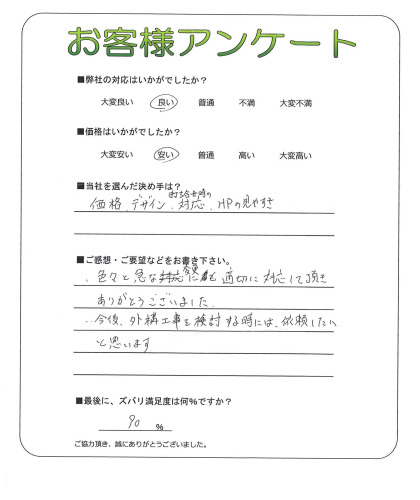 お客様アンケート
■弊社の対応はいかがでしたか？
大変良い 良い 普通 不満 大変不満
■価格はいかがでしたか？
大変安い 安い 普通 高い 大変高い
■当社を選んだ決め手は？
価格、デザイン、対応、HPの見やすさ
■ご感想・ご要望などをお書き下さい。
・色々と急な変更にも適切に対応して頂き
ありがとうございました。
・今後、外構工事を検討する時には、依頼したい
と思います
■最後に、ズバリ満足度は何％ですか？
90 ％
ご協力頂き、誠にありがとうございました。